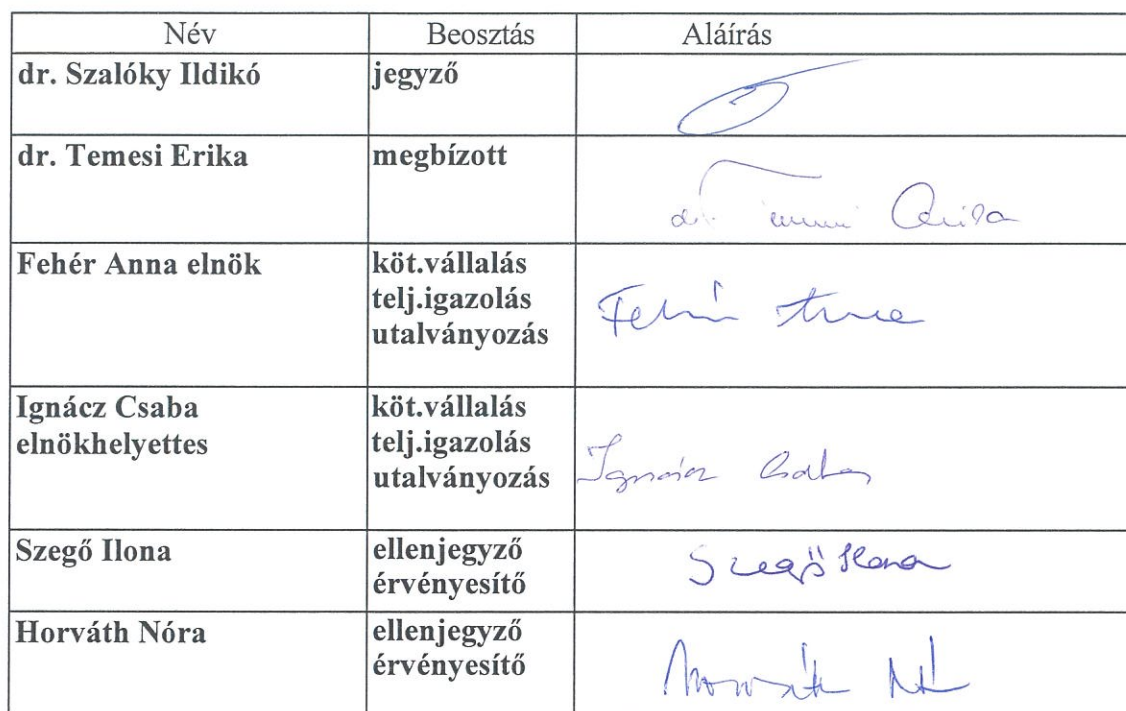 Név Beosztás Aláírás
dr. Szalóky Ildikó jegyző
dr. Temesi Erika megbízott
dr.
Fehér Anna elnök köt.vállalás
telj.igazolás
utalványozás
Fehér Anna
Ignácz Csaba köt.vállalás
elnökhelyettes telj.igazolás
utalványozás
Ignácz Csaba
Szegő Ilona ellenjegyző
érvényesítő
Szegő Ilona
Horváth Nóra ellenjegyző
érvényesítő